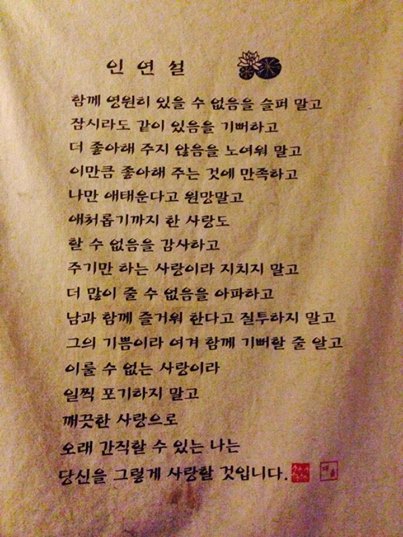 인연설
함께 영원히 있을 수 없음을 슬퍼 말고
잠시라도 같이 있음을 기뻐하고
더 좋아해 주지 않음을 노여워 말고
이만큼 좋아해 주는 것에 만족하고
나만 애태운다고 원망말고
애처롭기까지 한 사랑도
할 수 없음을 감사하고
주기만 하는 사랑이라 지치지 말고
더 많이 줄 수 없음을 아파하고
남과 함께 즐거워 한다고 질투하지 말고
그의 기쁨이라 여겨 함께 기뻐할 줄 알고
이룰 수 없는 사랑이라
일찍 포기하지 말고
깨끗한 사랑으로
오래 간직할 수 있는 나는
당신을 그렇게 사랑할 것입니다.